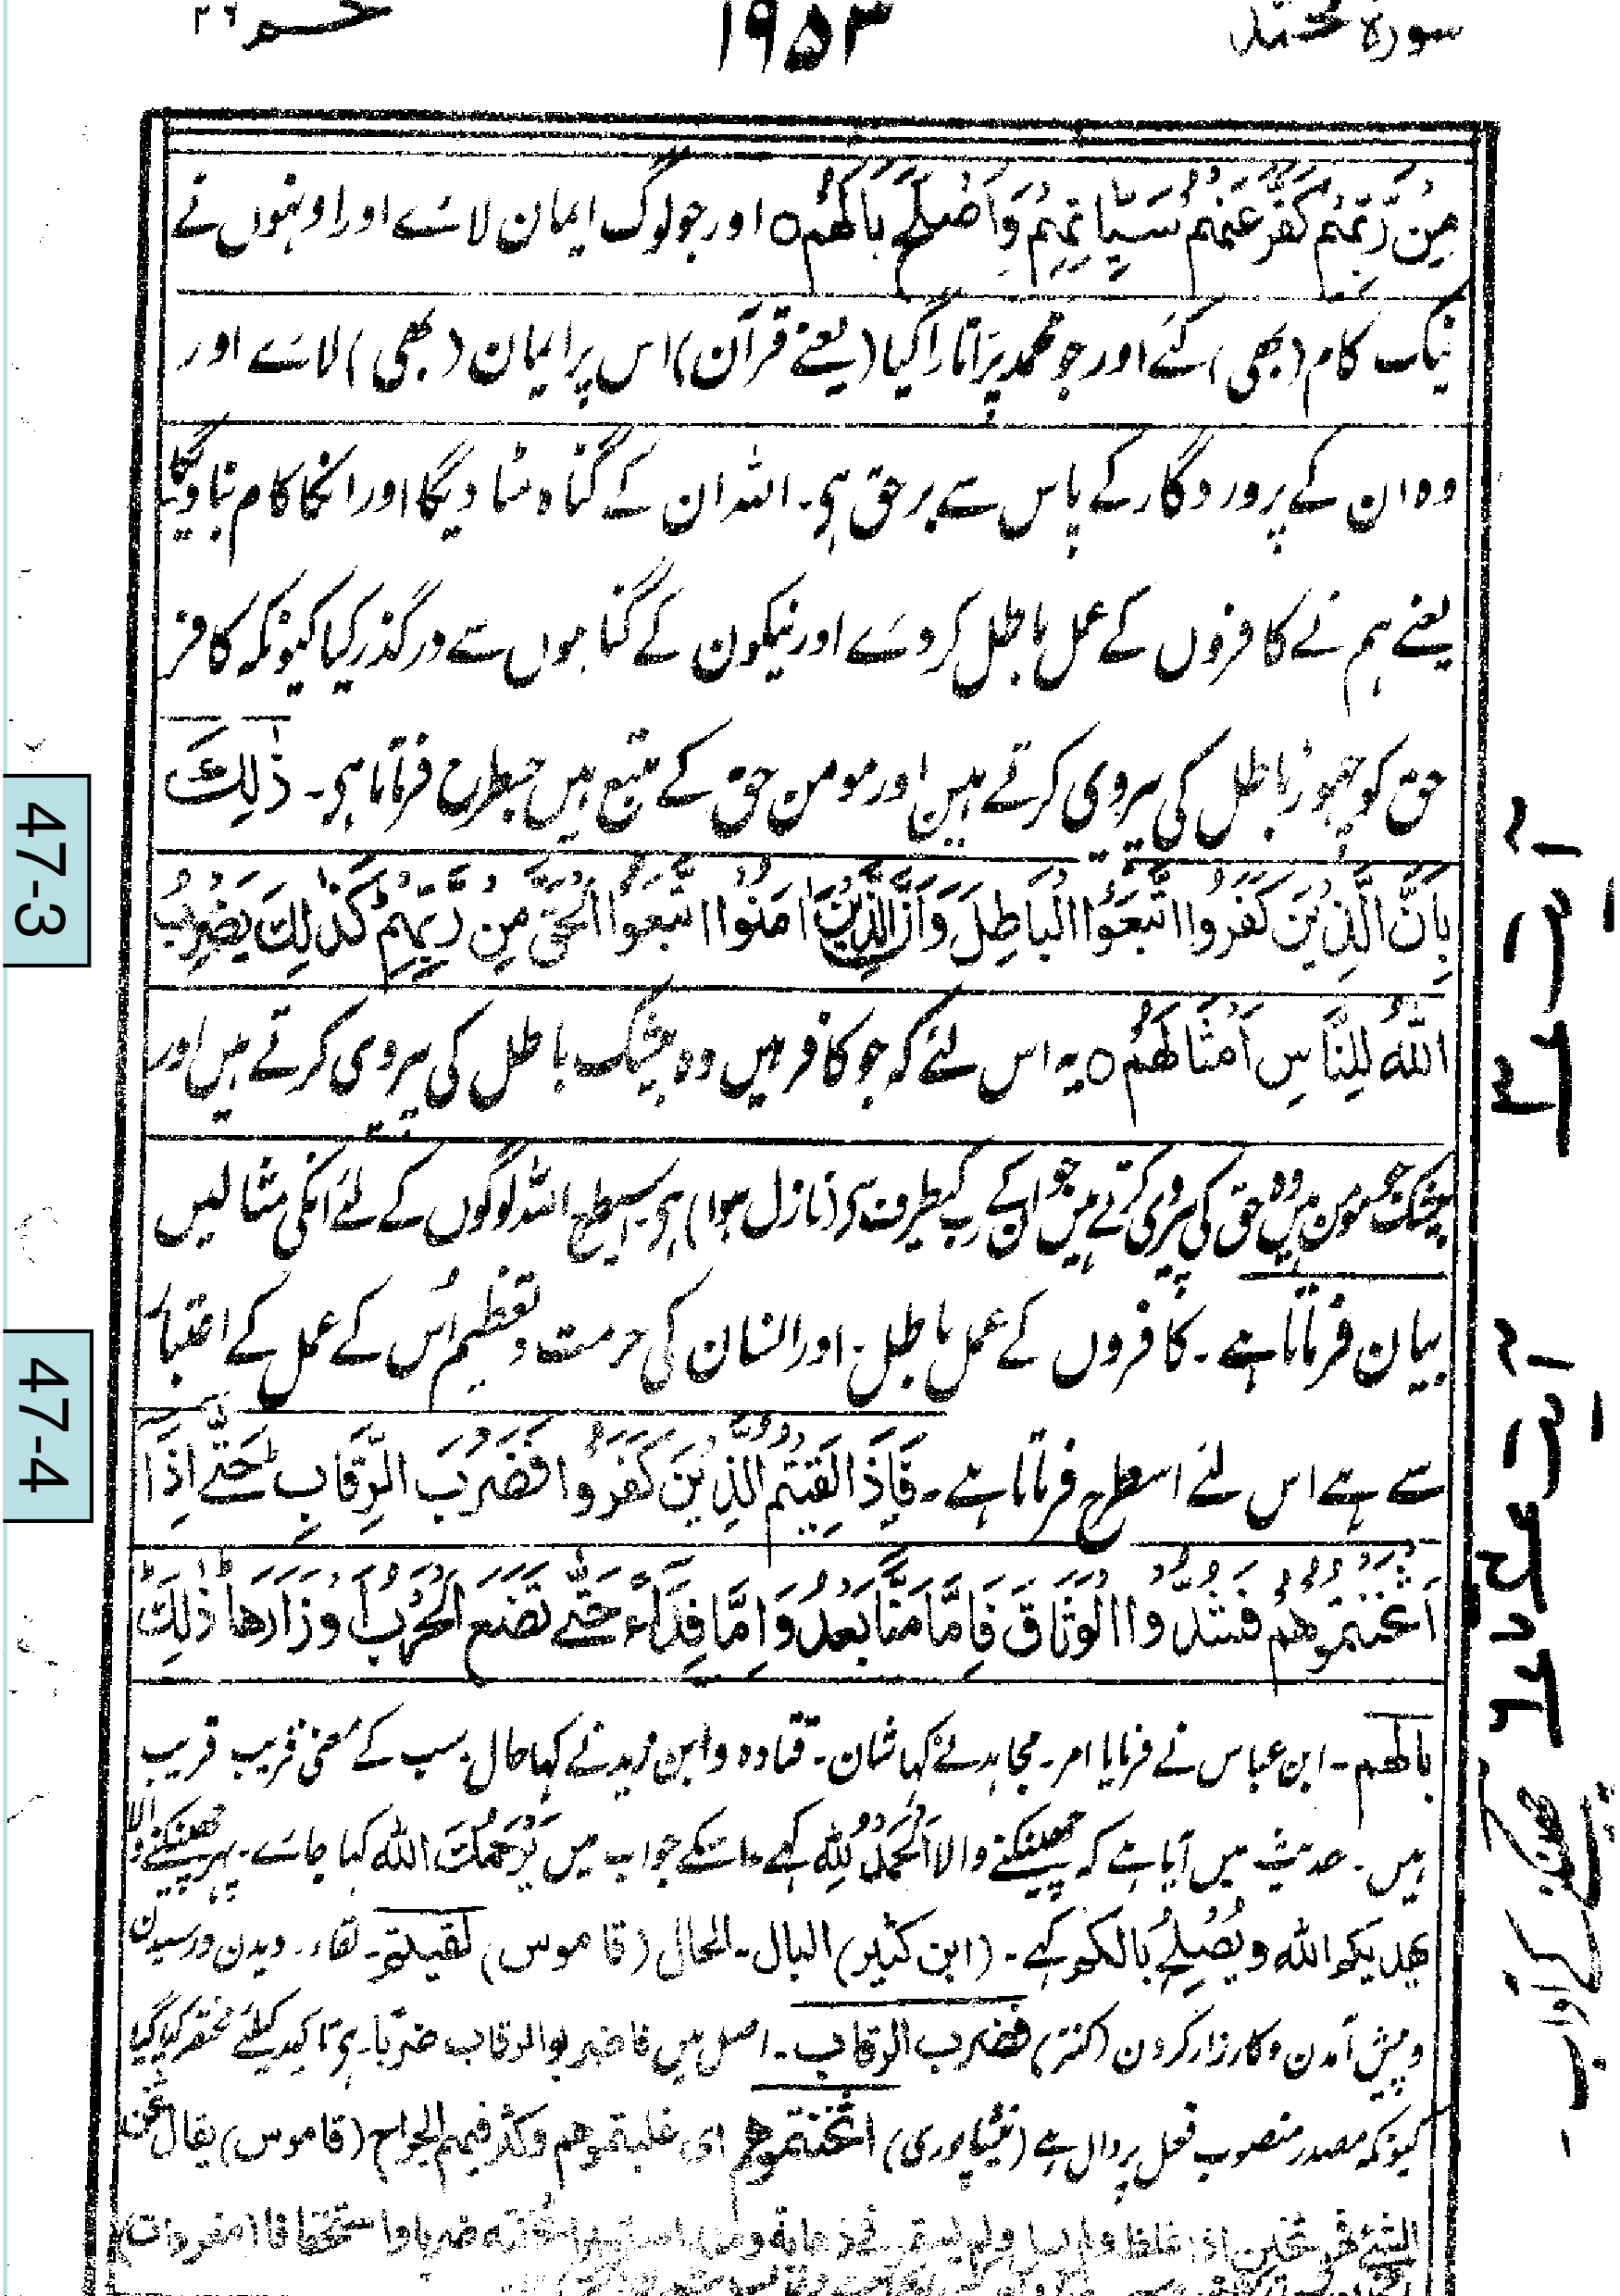 سورۃ محمد
۱۹۵۳
حم ۲۶
مِنْ رَّبِّهِمْ كَفَّرَ عَنْهُمْ سَيِّاٰتِهِمْ وَاَصْلَحَ بَالَهُمْ ○ اور جو لوگ ایمان لائے اور اونہوں نے
نیک کام (بھی) کئے اور جو محمد پر اتارا گیا (یعنے قرآن) اس پر ایمان (بھی) لائے اور
وہ ان کے پروردگار کے پاس سے برحق ہی۔ اللہ ان کے گناہ مٹا دیگا اور انکا کام بنا ویگا
یعنے ہم نے کافروں کے عمل باطل کر دے اور نیکون کے گناہوں سے درگذر کیا کیونکہ کافر
حق کو چھوڑ باطل کی پیروی کرتے ہیں اور مومن حق کے متبع ہیں جسطرح فرماتا ہی۔ ذٰلِكَ
بِاَنَّ الَّذِيْنَ كَفَرُوا اتَّبَعُوا الْبَاطِلَ وَاَنَّ الَّذِيْنَ اٰمَنُوا اتَّبَعُوا الْحَقَّ مِنْ رَّبِّهِمْ كَذٰلِكَ يَضْرِبُ
اللّٰهُ لِلنَّاسِ اَمْثَالَهُمْ ○ یہ اس لئے کہ جو کافر ہیں وہ بیشک باطل کی پیروی کرتے ہیں اور
بیشک جو مومن ہیں وہ حق کی پیروی کرتے ہیں جو ان کے رب کیطرف سے (نازل ہوا) ہی۔ اسیطرح اللہ لوگوں کے لئے انکی مثالیں
بیان فرماتا ہے۔ کافروں کے عمل باطل۔ اور انسان کی حرمت و تعظیم اُس کے عمل کے اعتبار
سے ہے اس لئے اسطرح فرماتا ہے۔ فَاِذَا لَقِيْتُمُ الَّذِيْنَ كَفَرُوْا فَضَرْبَ الرِّقَابِ حَتّٰۤى اِذَاۤ
اَثْخَنْتُمُوْهُمْ فَشُدُّوا الْوَثَاقَ فَاِمَّا مَنًّا بَعْدُ وَاِمَّا فِدَآءً حَتّٰى تَضَعَ الْحَرْبُ اَوْزَارَهَا ذٰلِكَ
بالھم۔ ابن عباس نے فرمایا امر۔ مجاہد نے کہا شان۔ قتادہ و ابن زید نے کہا حال۔ سب کے معنی قریب قریب
ہیں۔ حدیث میں آیا ہے کہ چھینکنے والا اَلْحَمْدُ لِلّٰہ کہے۔ اسکے جواب میں یَرْحَمُكَ اللہ کہا جائے۔ پھر چھینکنے والا
یھدیکم اللہ ویُصْلِحُ بالکم کہے۔ (ابن کثیر) البال۔ الحال (قاموس) لقیتم۔ لقاء۔ دیدن ورسیدن
وپیش آمدن وکارزار کردن (کنز) فضرب الرقاب۔ اصل میں فاضربوا الرقاب ضربا ہی تاکید کیلئے مختصر کیا گیا
کیونکہ مصدر منصوب فعل پر دال ہے (نیشاپوری) اثخنتموھم ای غلبتموھم وکثر فیھم الجراح (قاموس) یقال ثخن
الشیء فھو ثخین اذا غلظ
47-3
47-4